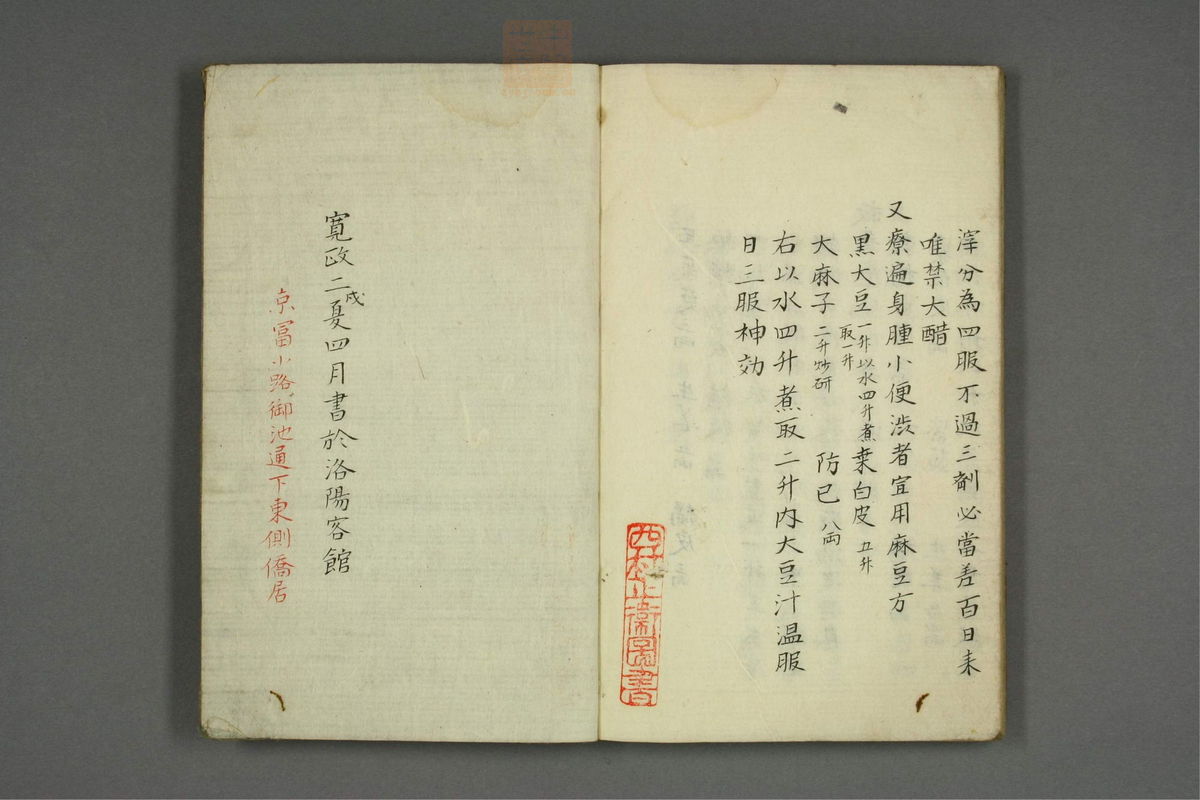 滓分為四服不過三劑必當差百日来
唯禁大醋
又療遍身腫小便渋者宜用麻豆方
黒大豆 一升以水四升煮取一升 桒白皮 五升
大麻子 二升炒研 防已 八両
右以水四升煮取二升内大豆汁温服
日三服神効
寛政二戌夏四月書於洛陽客館
京冨小路御池通下東側僑居